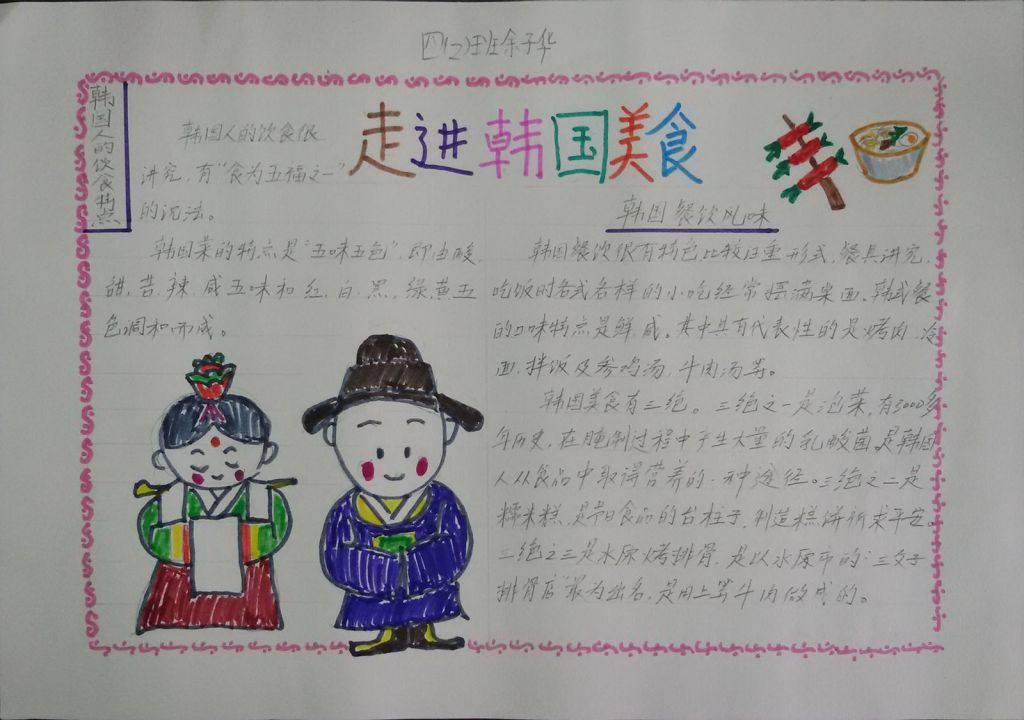 四(2)班余子华
走进韩国美食
韩国人的饮食特点
韩国人的饮食很
讲究,有“食为五福之一”
的说法。
韩国菜的特点是“五味五色”,即由酸、
甜、苦、辣、咸五味和红、白、黑、绿、黄五
色调和形成。
韩国餐饮风味
韩国餐饮很有特色比较注重形式,餐具讲究,
吃饭时各式各样的小吃经常摆满桌面。韩式餐
的口味特点是鲜、咸。其中具有代表性的是烤肉、冷
面、拌饭及参鸡汤、牛肉汤等。
韩国美食有三绝。三绝之一是泡菜,有3000多
年历史,在腌制过程中产生大量的乳酸菌,是韩国
人从食品中取得营养的一种途径。三绝之二是
糯米糕,是节日食品的台柱子,制造糕饼祈求平安。
三绝之三是水原烤排骨,是以水原市的“三父子
排骨店”最为出名,是用上等牛肉做成的。